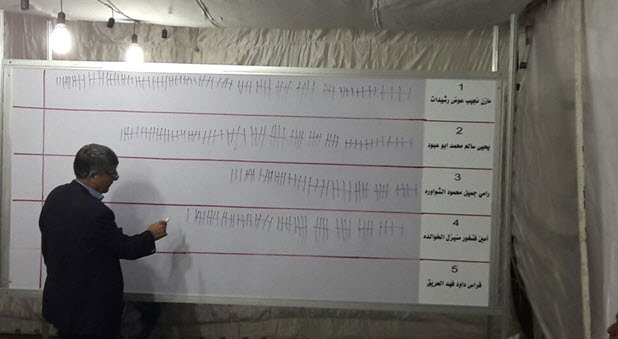 1
مازن نجيب عوض رشيدات
2
يحيى سالم محمد ابو عبود
3
رامي جميل محمود الشواوره
4
امين قنخور منيزل الخوالده
5
فراس داود فهد العريق